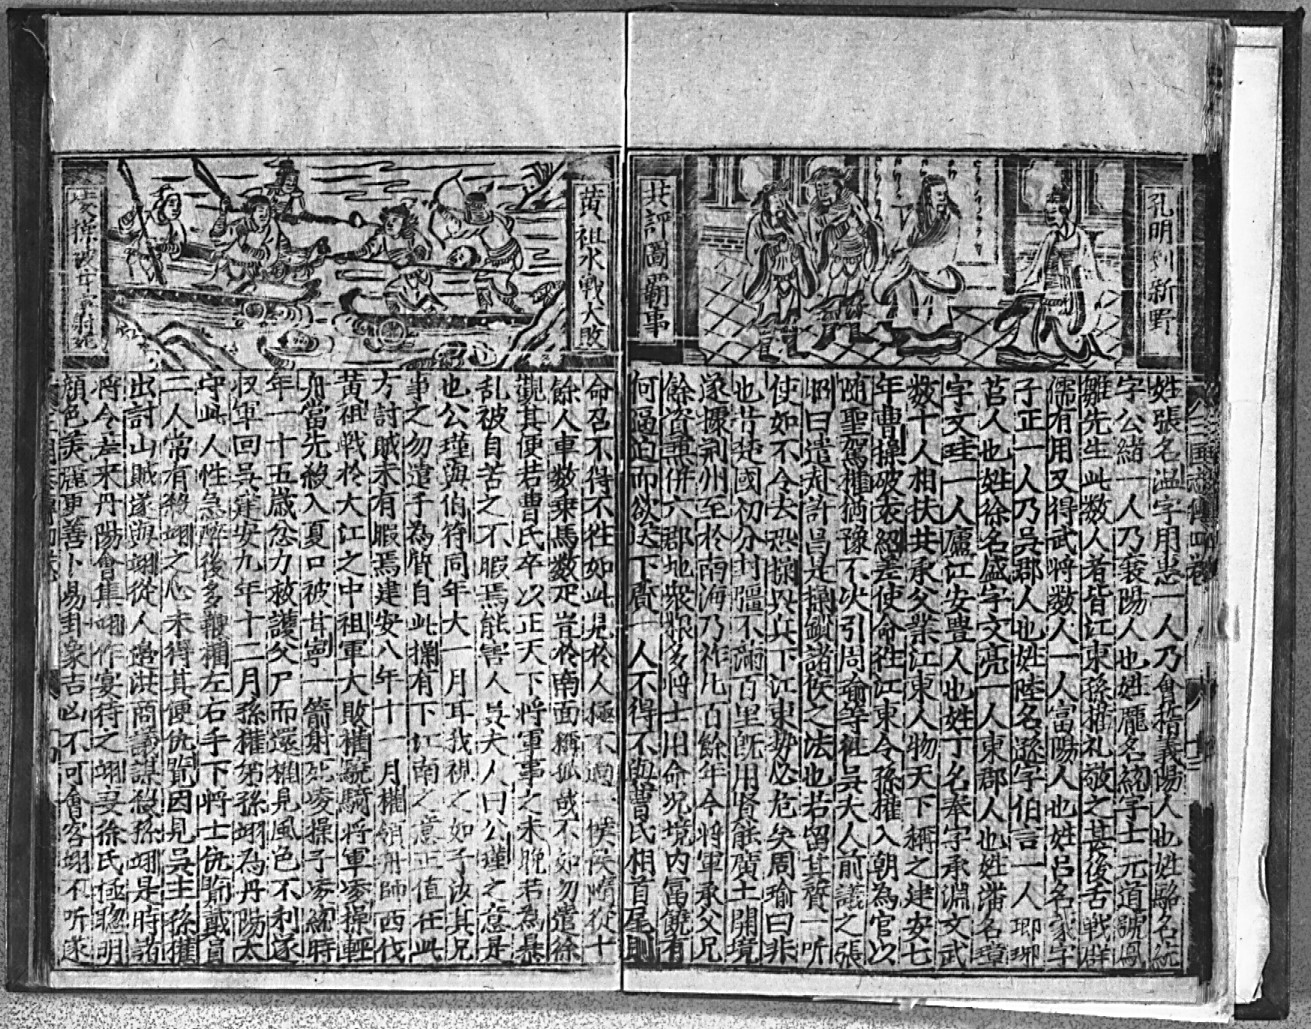 孔明到新野
共評圖霸事
姓張名溫字用惠一人乃會稽義陽人也姓駱名統
字公緒一人乃襄陽人也姓龐名統字士元道號鳳
雛先生此數人者皆江東孫權礼敬之甚後舌戰群
儒有用又得武將數人一人富陽人也姓呂名蒙字
子正一人乃吳郡人也姓陸名遜字伯言一人瑯琊
莒人也姓徐名盛字文亮一人東郡人也姓潘名璋
字文珪一人廬江安豊人也姓丁名奉字承淵文武
数十人相扶共承父業江東人物天下稱之建安七
年曹操破袁紹差使命往江東令孫權入朝為官以
随聖駕權猶豫不决引周瑜等徃吳大人前議之張
昭曰遣赴許昌是操鎖諸侯之法也若留其質一听
使如不令去恐操興兵下江東勢必危矣周瑜曰非
也昔楚國初分封疆不滿百里既用賢能廣土開境
遂據荆州至於南海乃祚九百餘年今將軍承父兄
餘資兼併六郡地衆粮多將士用命况境内富饒有
何逼迫而欲送下質一人不得不與曹氏相首尾則
黄祖水戰大敗
凌操被甘寧射死
命召不得不徃如此見於人極不過一侯侯幘從十
餘人車数乗馬数疋豈於南面稱孤哉不如勿遣徐
觀其便若曹氏卒以正天下將軍事之未晚若為暴
乱被自苦之不暇焉能害人吳夫人曰公瑾之意是
也公瑾與伯符同年大一月耳我視之如子汝其兄
事之勿遣子為質自此操有下江南之意正值在此
方討賊未有暇焉建安八年十一月權領舟師西伐
黄祖戰於大江之中祖軍大敗權驍騎將軍凌操輕
舟當先殺入夏口被甘寧一箭射死凌操子凌統時
年一十五歲忿力救護父尸而還權見風色不利遂
収軍回吳建安九年十二月孫權弟孫翊為丹陽太
守此人性急醉後多鞭撻左右手下將士
二人常有殺翊之心未得其便因見吳主孫權
出討山賊遂與翊從人邊洪商議謀殺孫翊是時諸
將令差來丹陽會集翊作宴待之翊妻徐氏極聰明
顔色美麗更善卜易卦象吉凶不可會客翊不听遂